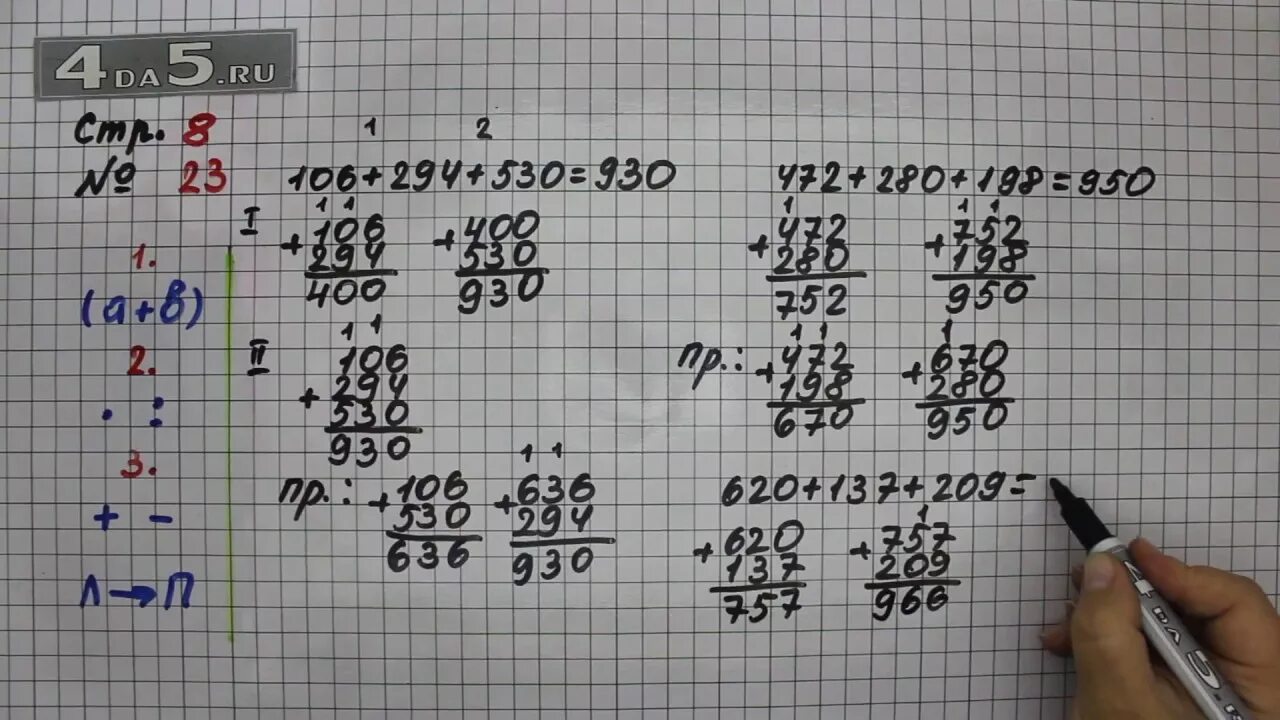 4DA5.RU
Стр. 8
№ 23
1.
(а+в)
2.
· :
3.
+ −
Л→П
1 2
106+294+530=930
I
1 1
+106
294
400
+400
530
930
II
1 1
106
+294
530
930
пр.:
+106
530
636
1 1
+636
294
930
472+280+198=950
1
+472
280
752
1 1
+752
198
950
пр.:
1 1
+472
198
670
1
+670
280
950
620+137+209=
+620
137
757
1
+757
209
966
4 DA 5.